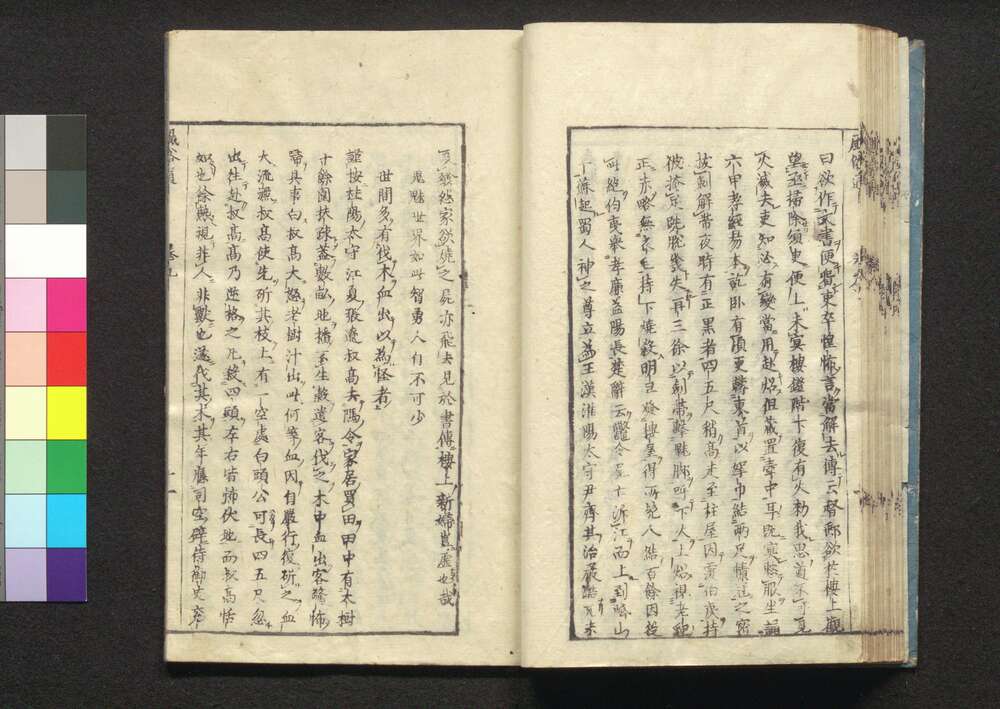 曰欲作文書便將東卒惶怖言當解去傳云督郵欲於樓上觀
望亟掃除須臾便上未冥樓鐙階下復有火勅我思道不可見
火滅去吏知必有變當用赴照但藏置壺中耳既冥整服坐誦
六甲孝經易本訖臥有頃更轉東首以絮巾結兩足幘冠之密
拔劍解帶夜時有正黑者四五尺稍高走至柱屋因覆伯夷持
被掩足跣脫幾失再三徐以劍帶擊魅脚呼下火上照視老狸
正赤略無衣毛持下燒殺明旦發樓屋得所髡人結百餘因從
此絕伯夷舉孝廉益陽長楚辭云鼈令尸亡泝江而上到㟭山
下蘇起蜀人神之尊立爲王漢淮陽太守尹齊其治嚴酷死未
風俗通 卷九
及殮怨家欲燒之屍亦飛去見於書傳樓上新婦豈虛也哉
鬼魅世界如此智勇人自不可少
世間多有伐木血出以爲怪者
謹按桂陽太守江夏張遼叔高去隱令家居買田田中有大樹
十餘圍扶疎蓋數畝地播不生穀遣客伐之木中血出客驚怖
歸具事白叔高大怒老樹汁出此何等血因自嚴行復斫之血
大流灑叔高使先斫其枝上有一空處白頭公可長四五尺忽
出往赴叔高高乃逆格之凡殺四頭左右皆怖伏地而叔高恬
如也徐熟視非人非獸也遂伐其木其年應司空辟侍御史兗
風俗通 卷九 十一